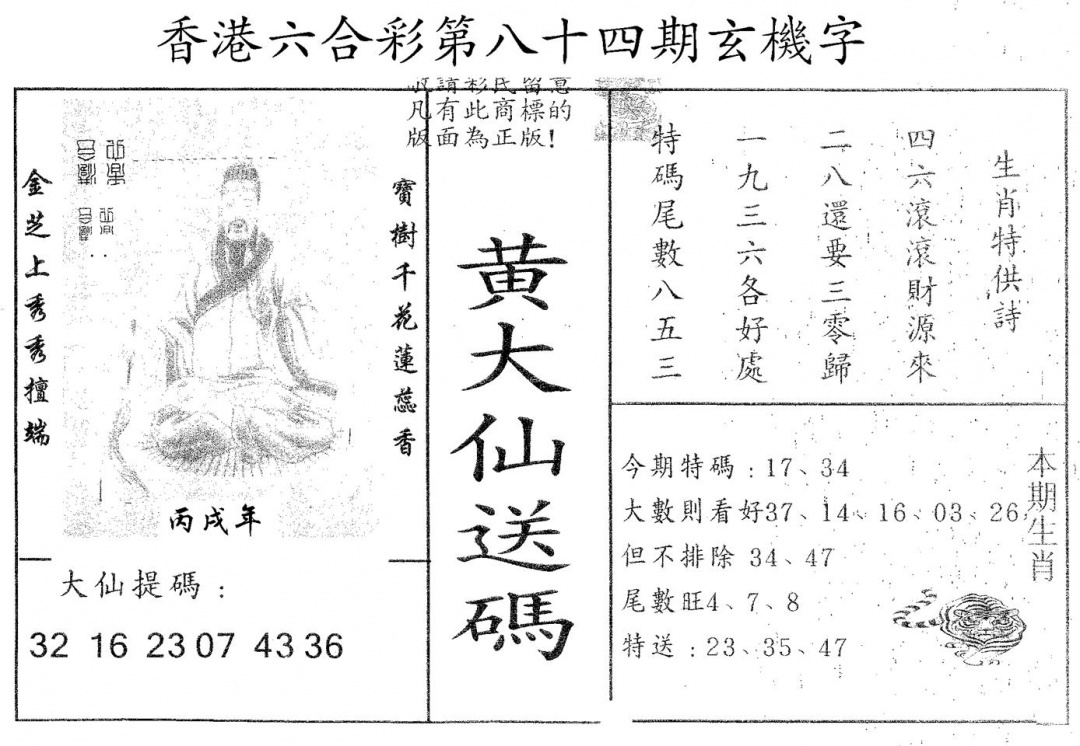 香港六合彩第八十四期玄機字
凡有此商標的
版面為正版!
金芝上秀秀擅端
寶樹千花蓮蕊香
丙戌年
大仙提碼：
32 16 23 07 43 36
黃大仙送碼
生肖特供詩
四六滾滾財源來
二八還要三零歸
一九三六各好處
特碼尾數八五三
今期特碼：17、34
大數則看好37、14、16、03、26
但不排除 34、47
尾數旺4、7、8
特送：23、35、47
本期生肖